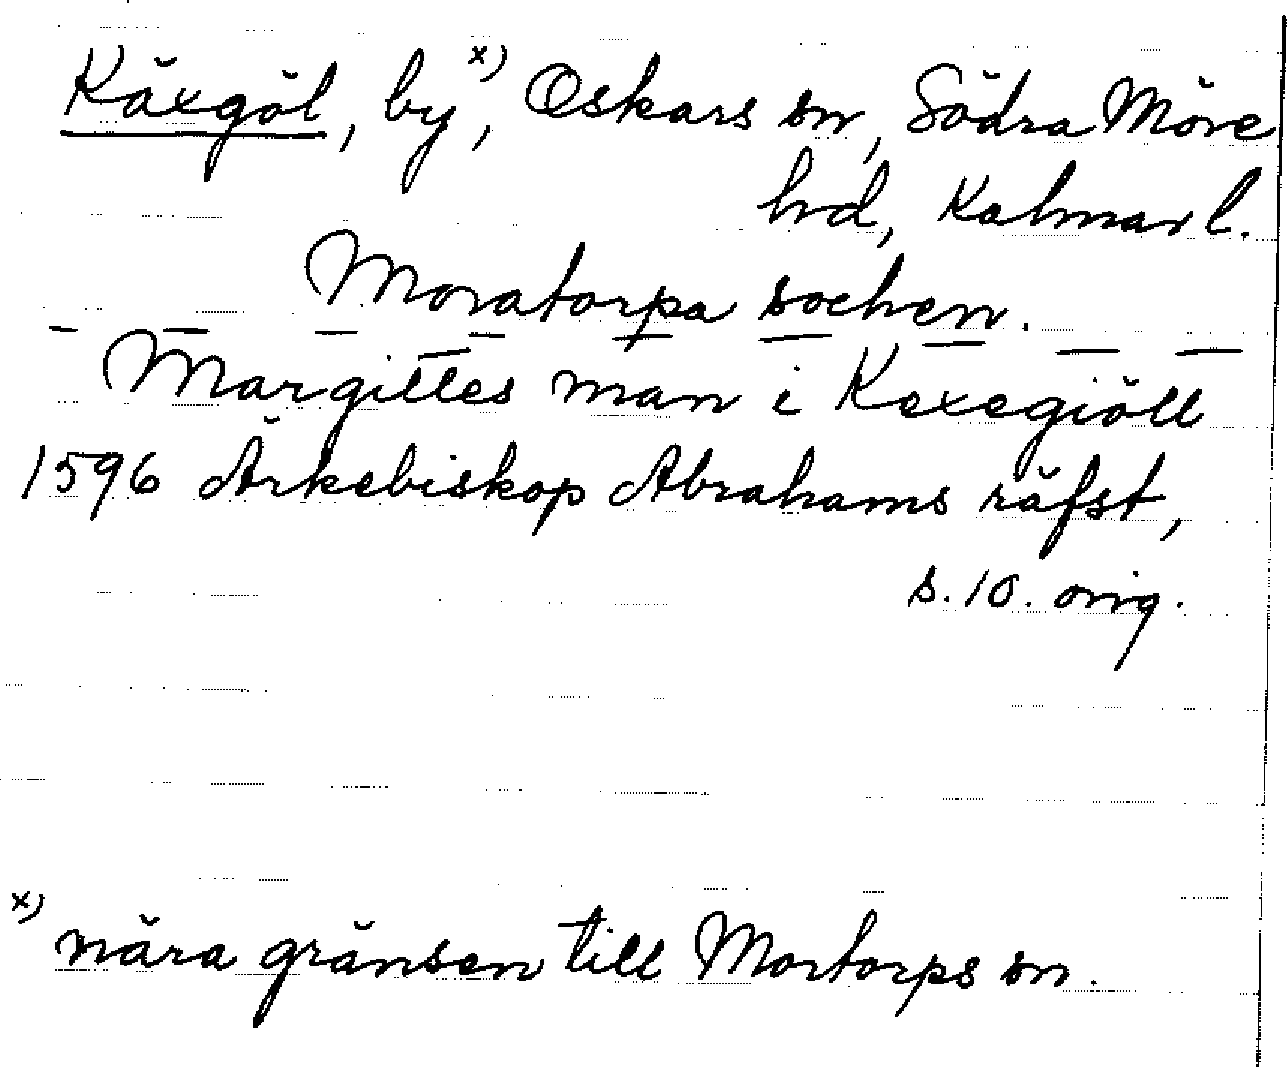 Käxgöl, by, x) Oskars sn, Södra Möre
hrd, Kalmar l.
Moratorpa sochen.
— — — — — — — — —
Margittes man i Kexegiöll
1596 Ärkebiskop Abrahams räfst,
s. 10. orig.
x) nära gränsen till Mortorps sn.